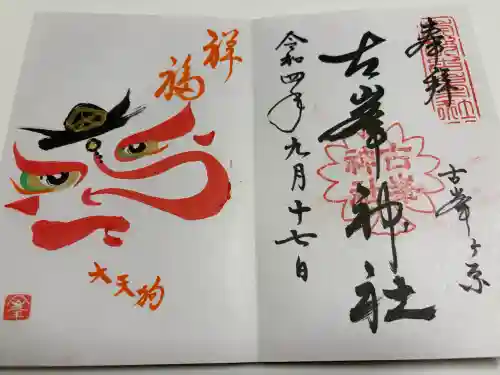 奉拝
古峯神社
古峯ヶ原
令和四年九月十七日
古峯
神社
祥福
大天狗